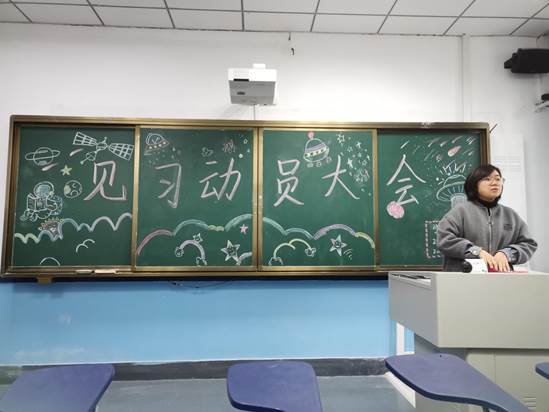 见习动员大会